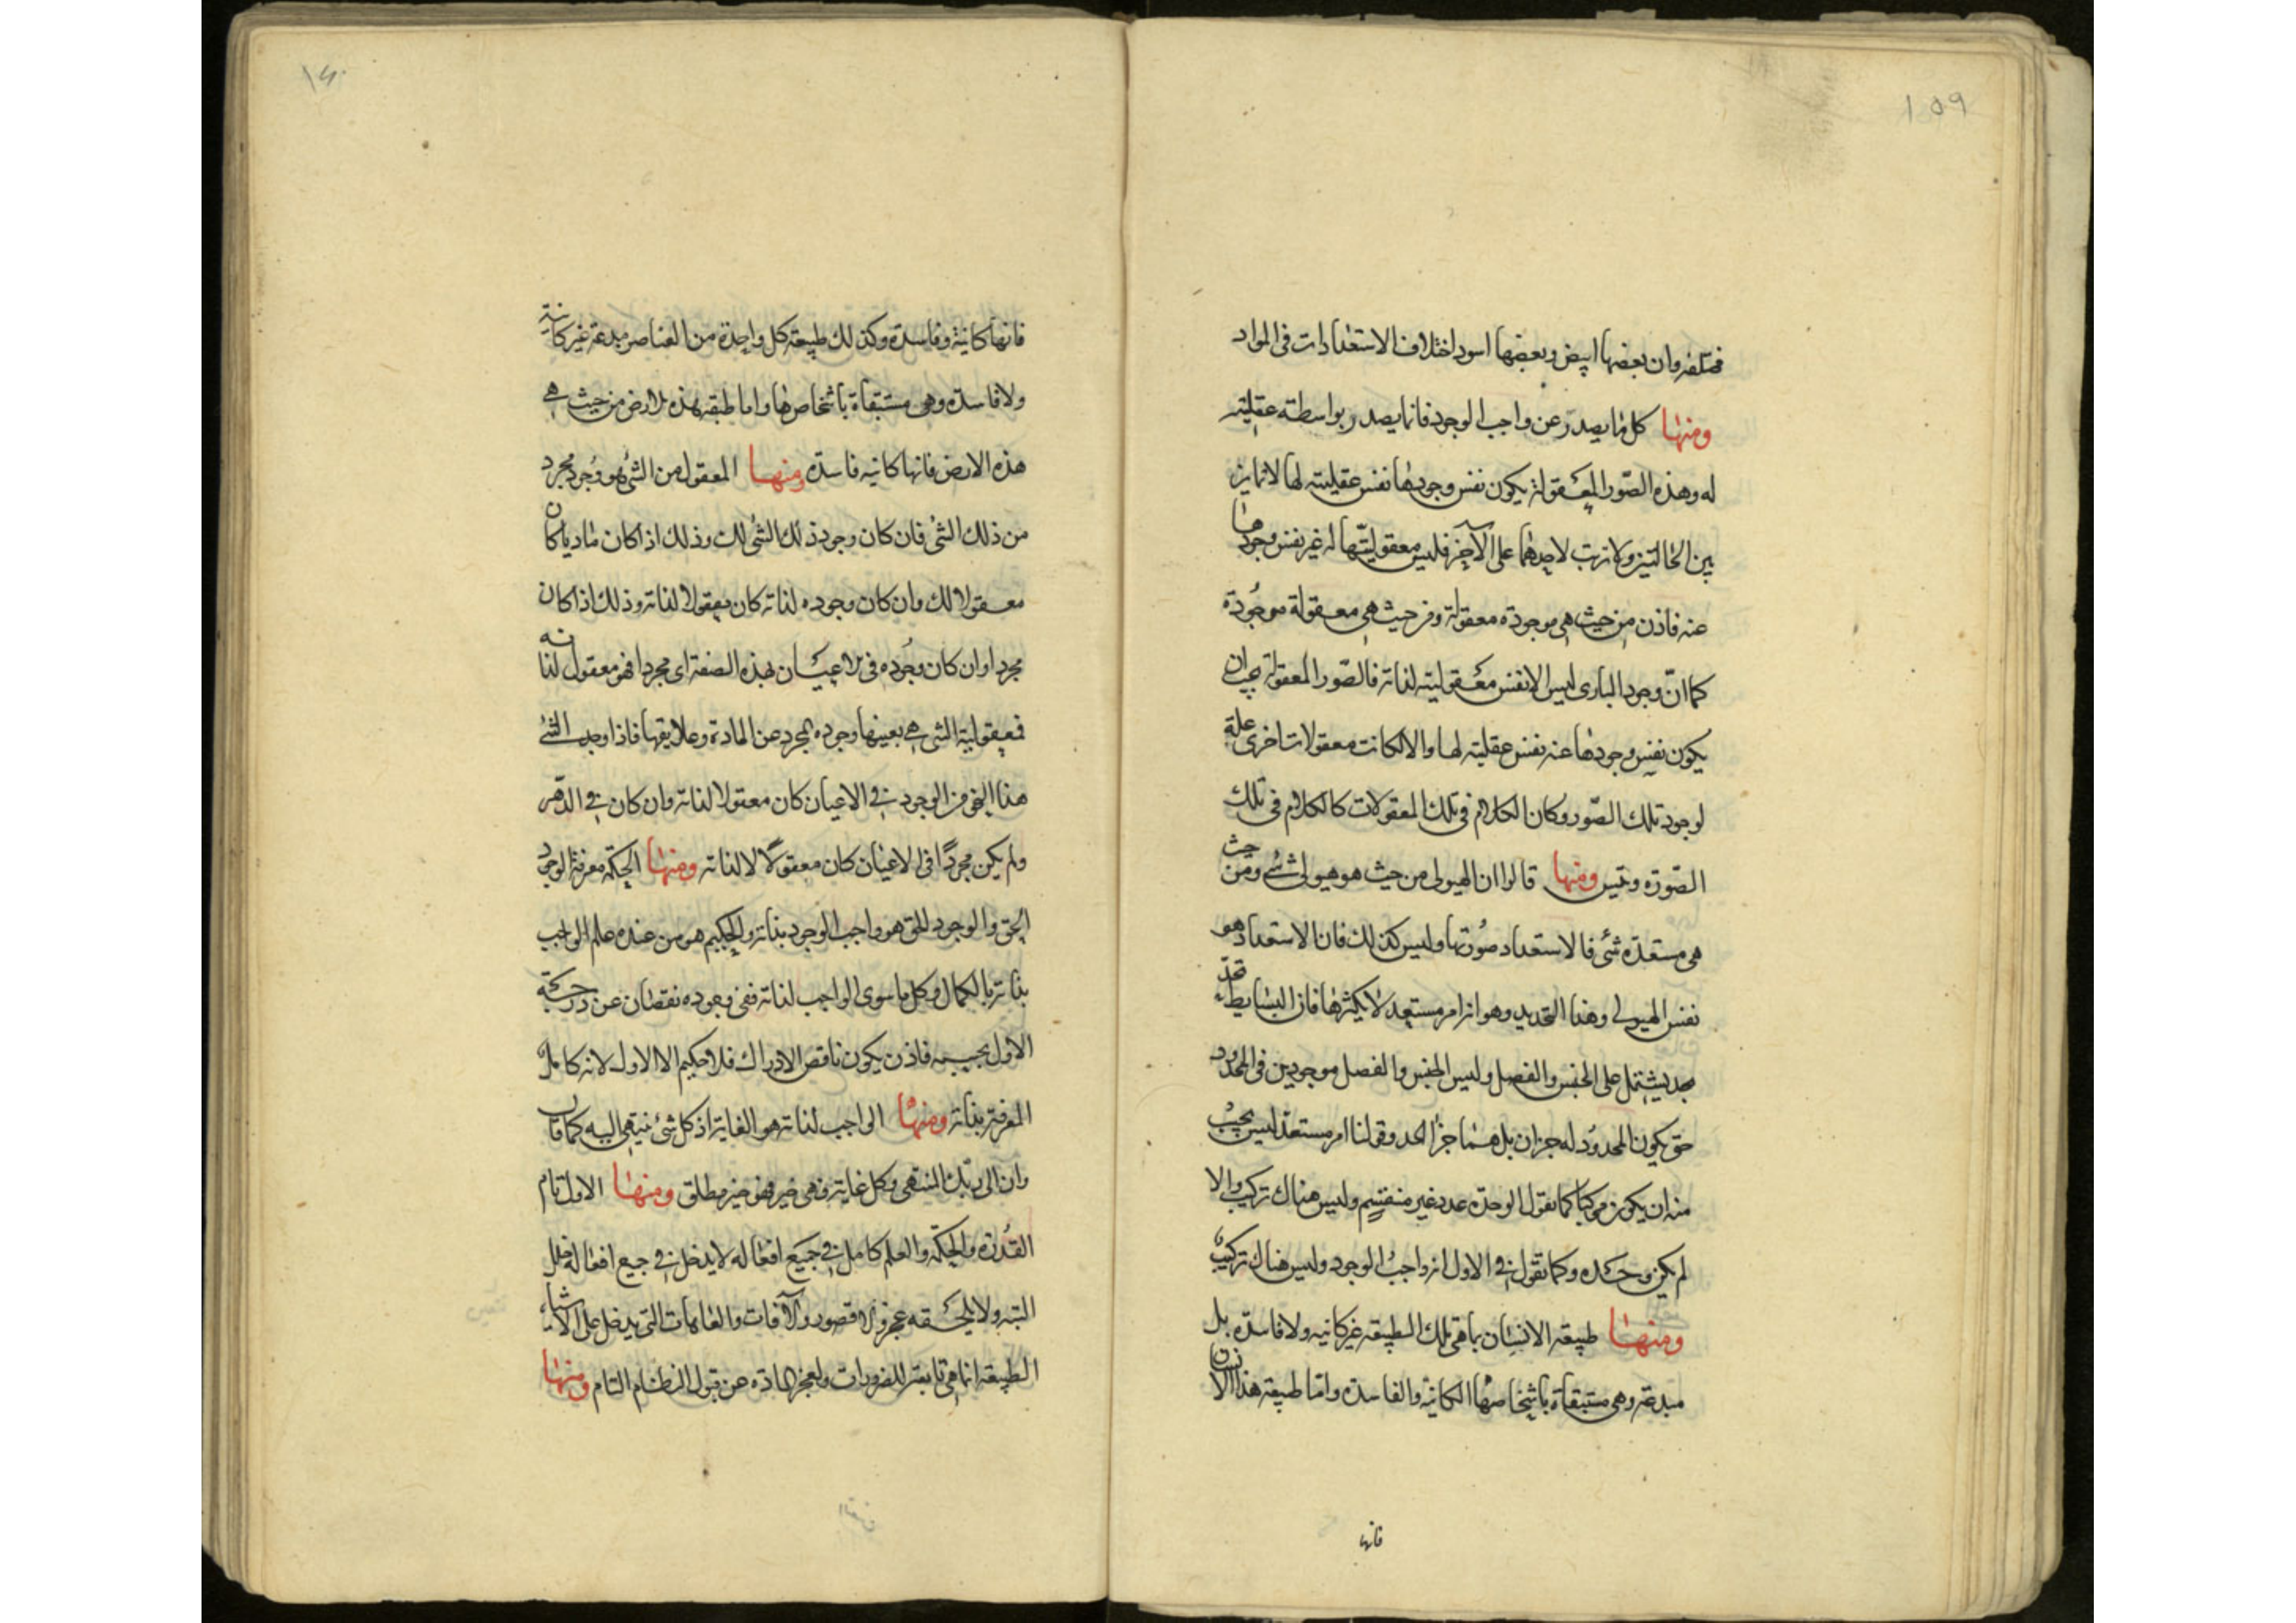 ١٥٩
مختلفه وان بعضها ابيض وبعضها اسود اختلاف الاستعدادات فى المواد
ومنها كل ما يصدر عن واجب الوجود فانما يصدر بواسطة عقليته
له وهذه الصّور المعقولة يكون نفس وجودها نفس عقليته لها لا تمايز
بين الحالتين ولا ترتب لاحدهما على الآخر فليس معقوليتها له غير نفس وجودها
عنه فاذن من حيث هى موجودة معقولة ومن حيث هى معقولة موجودة
كما انّ وجود البارى ليس الا نفس معقوليته لذاته فالصّور المعقولة يجب ان
يكون نفس وجودها عنه نفس عقليته لها والا لكانت معقولات اخرى علة
لوجود تلك الصّور وكان الكلام فى تلك المعقولات كالكلام فى تلك
الصّورة ومنها قالوا ان الهيولى من حيث هو هيولى شئ ومن حيث
هى مستعدّه شئ فالاستعداد صورتها وليس كذلك فان الاستعداد هو
نفس الهيولى وهذا التحديد وهو انه امر مستعد لا يكثرها فان البسايط تحدّ
بحد يشتمل على الجنس والفصل وليس الجنس والفصل موجودين فى المحدود
حتى يكون المحدود له جزان بل هما جزا الحد وقولنا امر مستعدّ ليس يجب
منه ان يكون مركبا كما نقول الوحدة عدد غير منقسم وليس هناك تركيب والا
لم يكن وحده وكما نقول فى الاول انه واجب الوجود وليس هناك تركيب
ومنها طبيعه الانسان بما هى تلك الطبيعه غير كاينه ولا فاسدة بل
مبدعة وهى مستبقاة باشخاصها الكاينة والفاسدة واما طبيعة هذا الانسان
فانها
١٦٠
فانها كاينة وفاسدة وكذلك طبيعة كل واحدة من العناصر مبدعة غير كاينة
ولا فاسدة وهى مستبقاة باشخاصها واما طبيعه هذه الارض من حيث هى
هذه الارض فانها كاينه فاسدة ومنها المعقول من الشئ هو وجود مجرد
من ذلك الشئ فان كان وجود ذلك الشئ لك وذلك اذا كان ماديا كان
معقولا لك وان كان وجوده لذاته كان معقولا لذاته وذلك اذا كان
مجردا وان كان وجوده فى الاعيان بهذه الصفة اى مجردا فهو معقول لذاته
فمعقولية الشئ هى بعينها وجوده المجرد عن المادة وعلايقها فاذا وجد الشئ
هذا النحو من الوجود فى الاعيان كان معقولا لذاته وان كان فى الذهن
ولم يكن مجردًا فى الاعيان كان معقولًا لا لذاته ومنها الحكمة معرفة الوجود
الحق والوجود الحق هو واجب الوجود بذاته والحكيم هو من عنده علم الواجب
بذاته بالكمال وكل ما سوى الواجب لذاته ففى وجوده نقصان عن درجة
الاول بحسبه فاذن يكون ناقص الادراك فلا حكيم الا الاول لانه كامل
المعرفة بذاته ومنها الواجب لذاته هو الغاية اذ كل شئ ينتهى اليه كما قال
وان الى ربّك المنتهى وكل غاية فهى خير فهو خير مطلق ومنها الاول تام
القدرة والحكمة والعلم كامل فى جميع افعاله لا يدخل فى جميع افعاله خلل
البتة ولا يلحقه عجز ولا قصور والآفات والعاهات التى يدخل على الاشياء
الطبيعه انما هى تابعة للضرورات ولعجز المادة عن قبول النظام التام ومنها